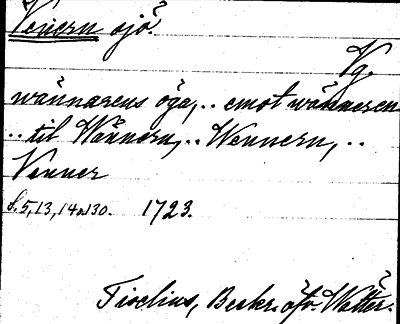 Venern sjö.
Vg.
wännarens öga, .. emot wännaren
.. til Wännern, .. Wennern, ..
Venner
S. 5, 13, 14 o 130. 1723.
Tiselius, Beskr. öfv. Wätter.